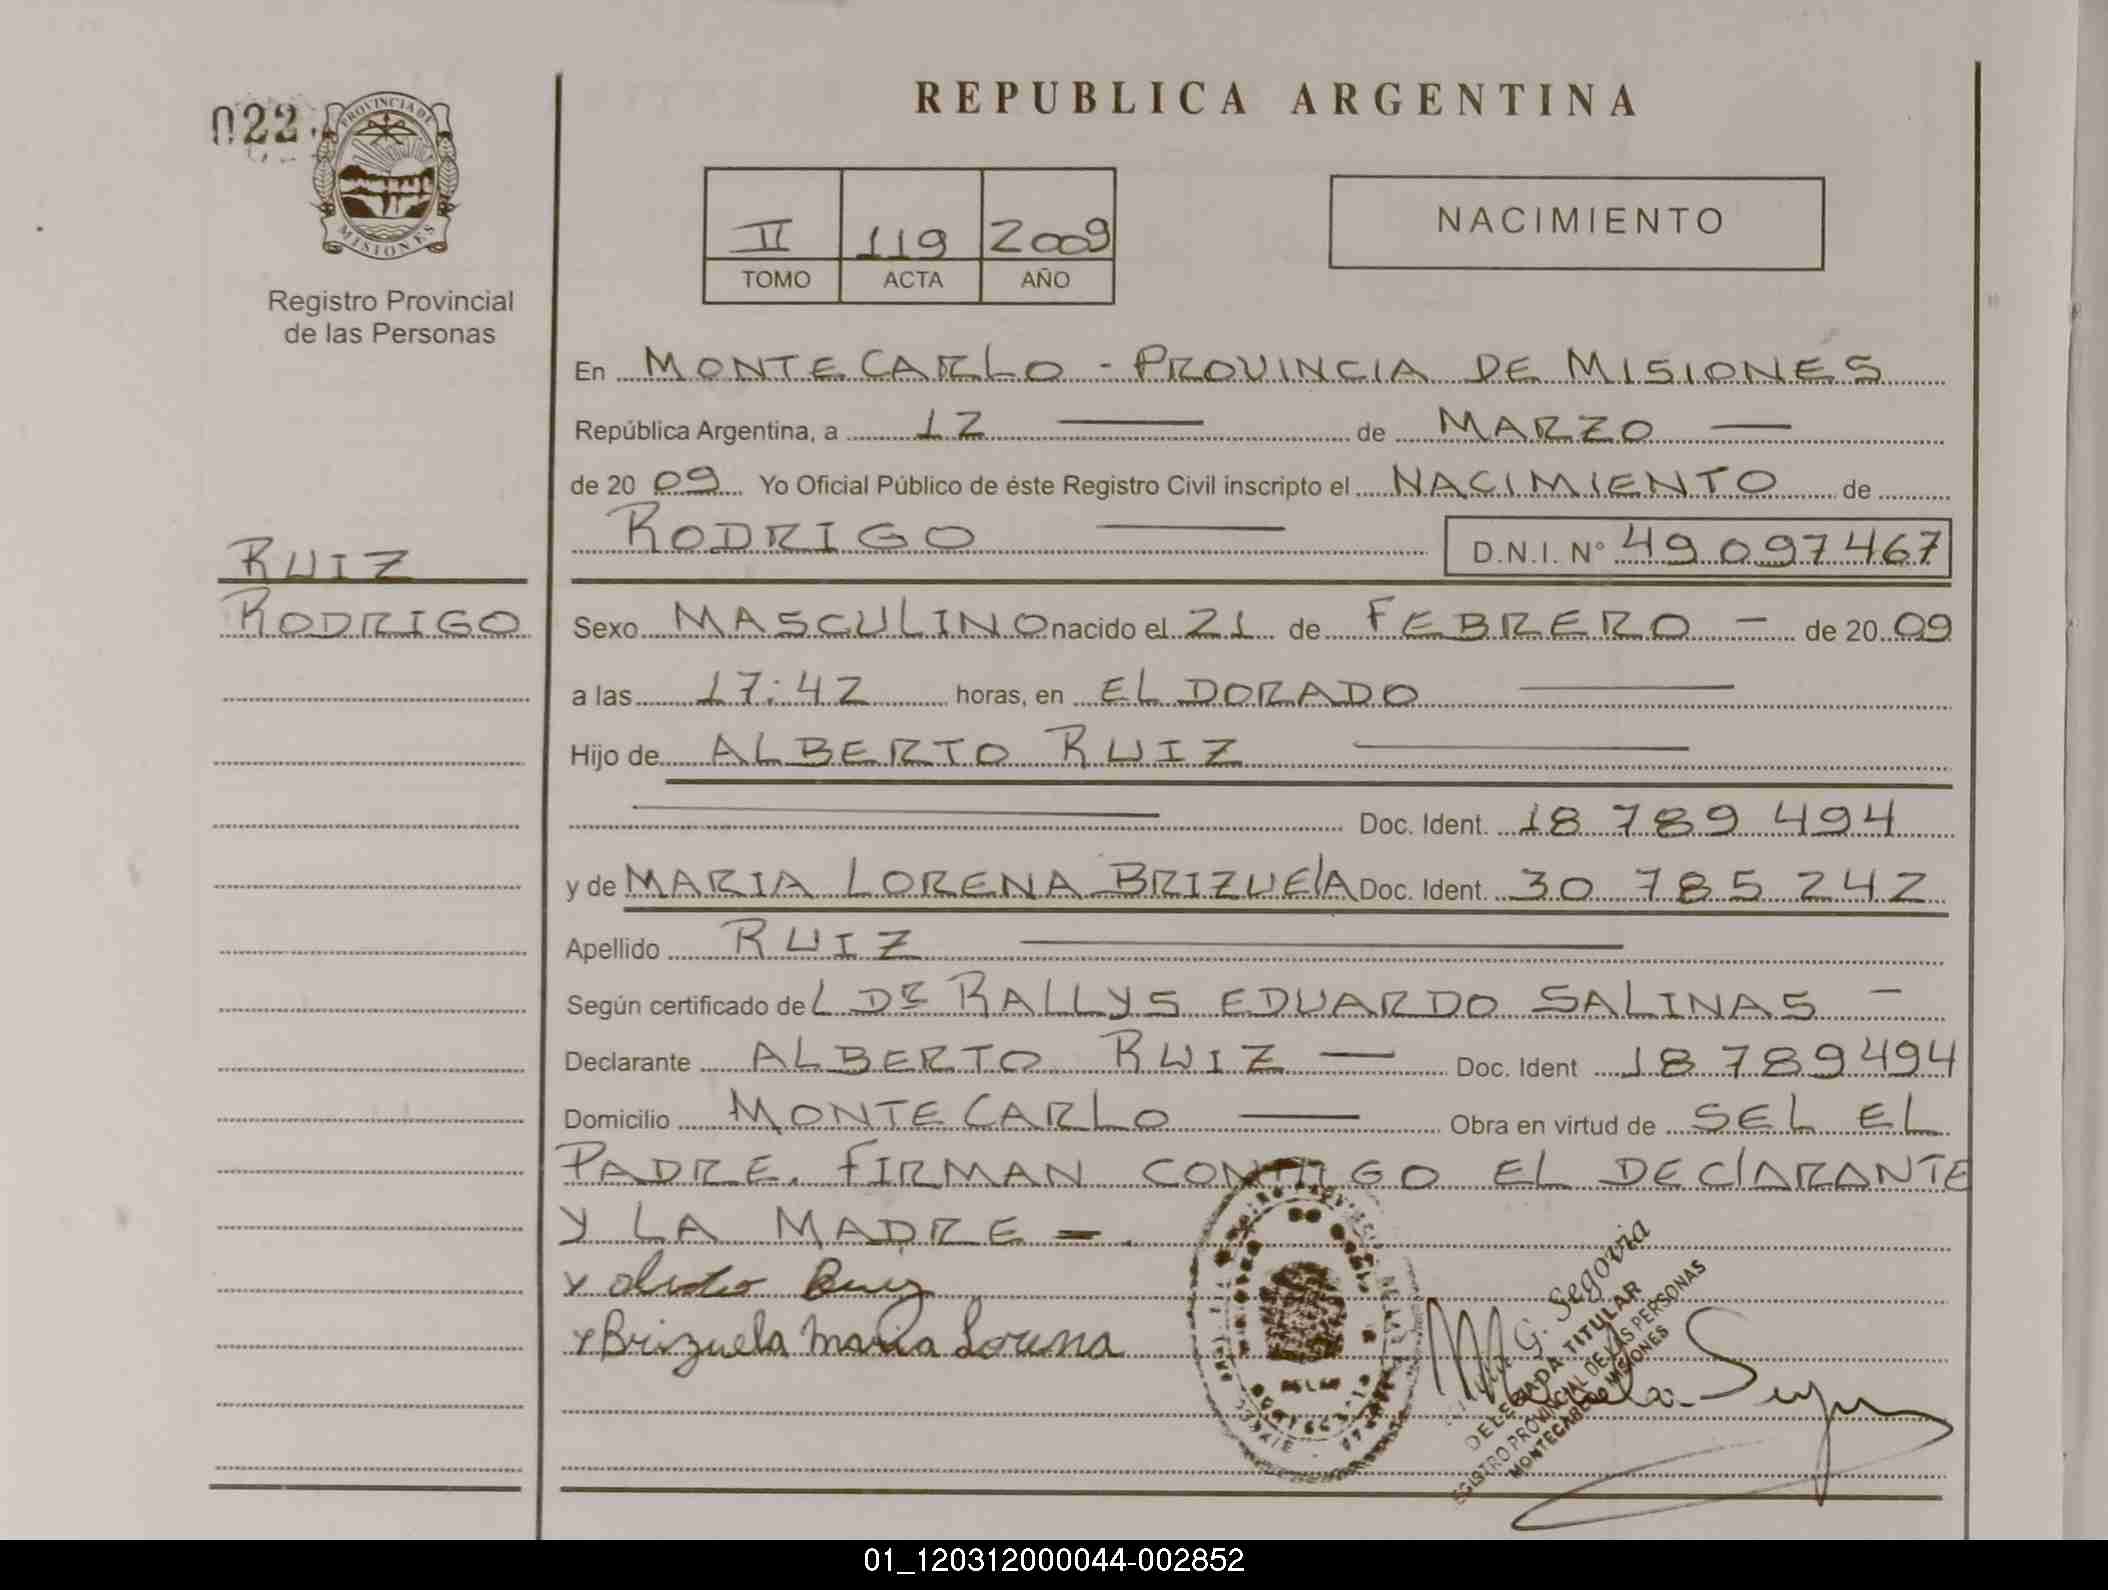 022
PROVINCIA DE
MISIONES
Registro Provincial
de las Personas
REPUBLICA ARGENTINA
II 119 2009
TOMO ACTA AÑO
NACIMIENTO
En MONTECARLO - PROVINCIA DE MISIONES
República Argentina, a 12 de MARZO
de 20 09 Yo Oficial Público de éste Registro Civil inscripto el NACIMIENTO de
RODRIGO D.N.I. N° 49097467
RUIZ
RODRIGO
Sexo MASCULINO nacido el 21 de FEBRERO - de 20 09
a las 17:42 horas, en ELDORADO
Hijo de ALBERTO RUIZ
Doc. Ident. 18 789 494
y de MARIA LORENA BRIZUElA Doc. Ident. 30 785 242
Apellido RUIZ
Según certificado del DR RALLYS EDUARDO SALINAS -
Declarante ALBERTO RUIZ Doc. Ident 18 789494
Domicilio MONTECARLO Obra en virtud de SEL EL
PADRE. FIRMAN CONMIGO EL DEClARANTE
Y LA MADRE -.
x Ruiz
x Brizuela Maria Lorena
G. Segovia
DELEGADA TITULAR
REGISTRO PROVINCIAL DE LAS PERSONAS
MONTECARLO MISIONES
01_120312000044-002852